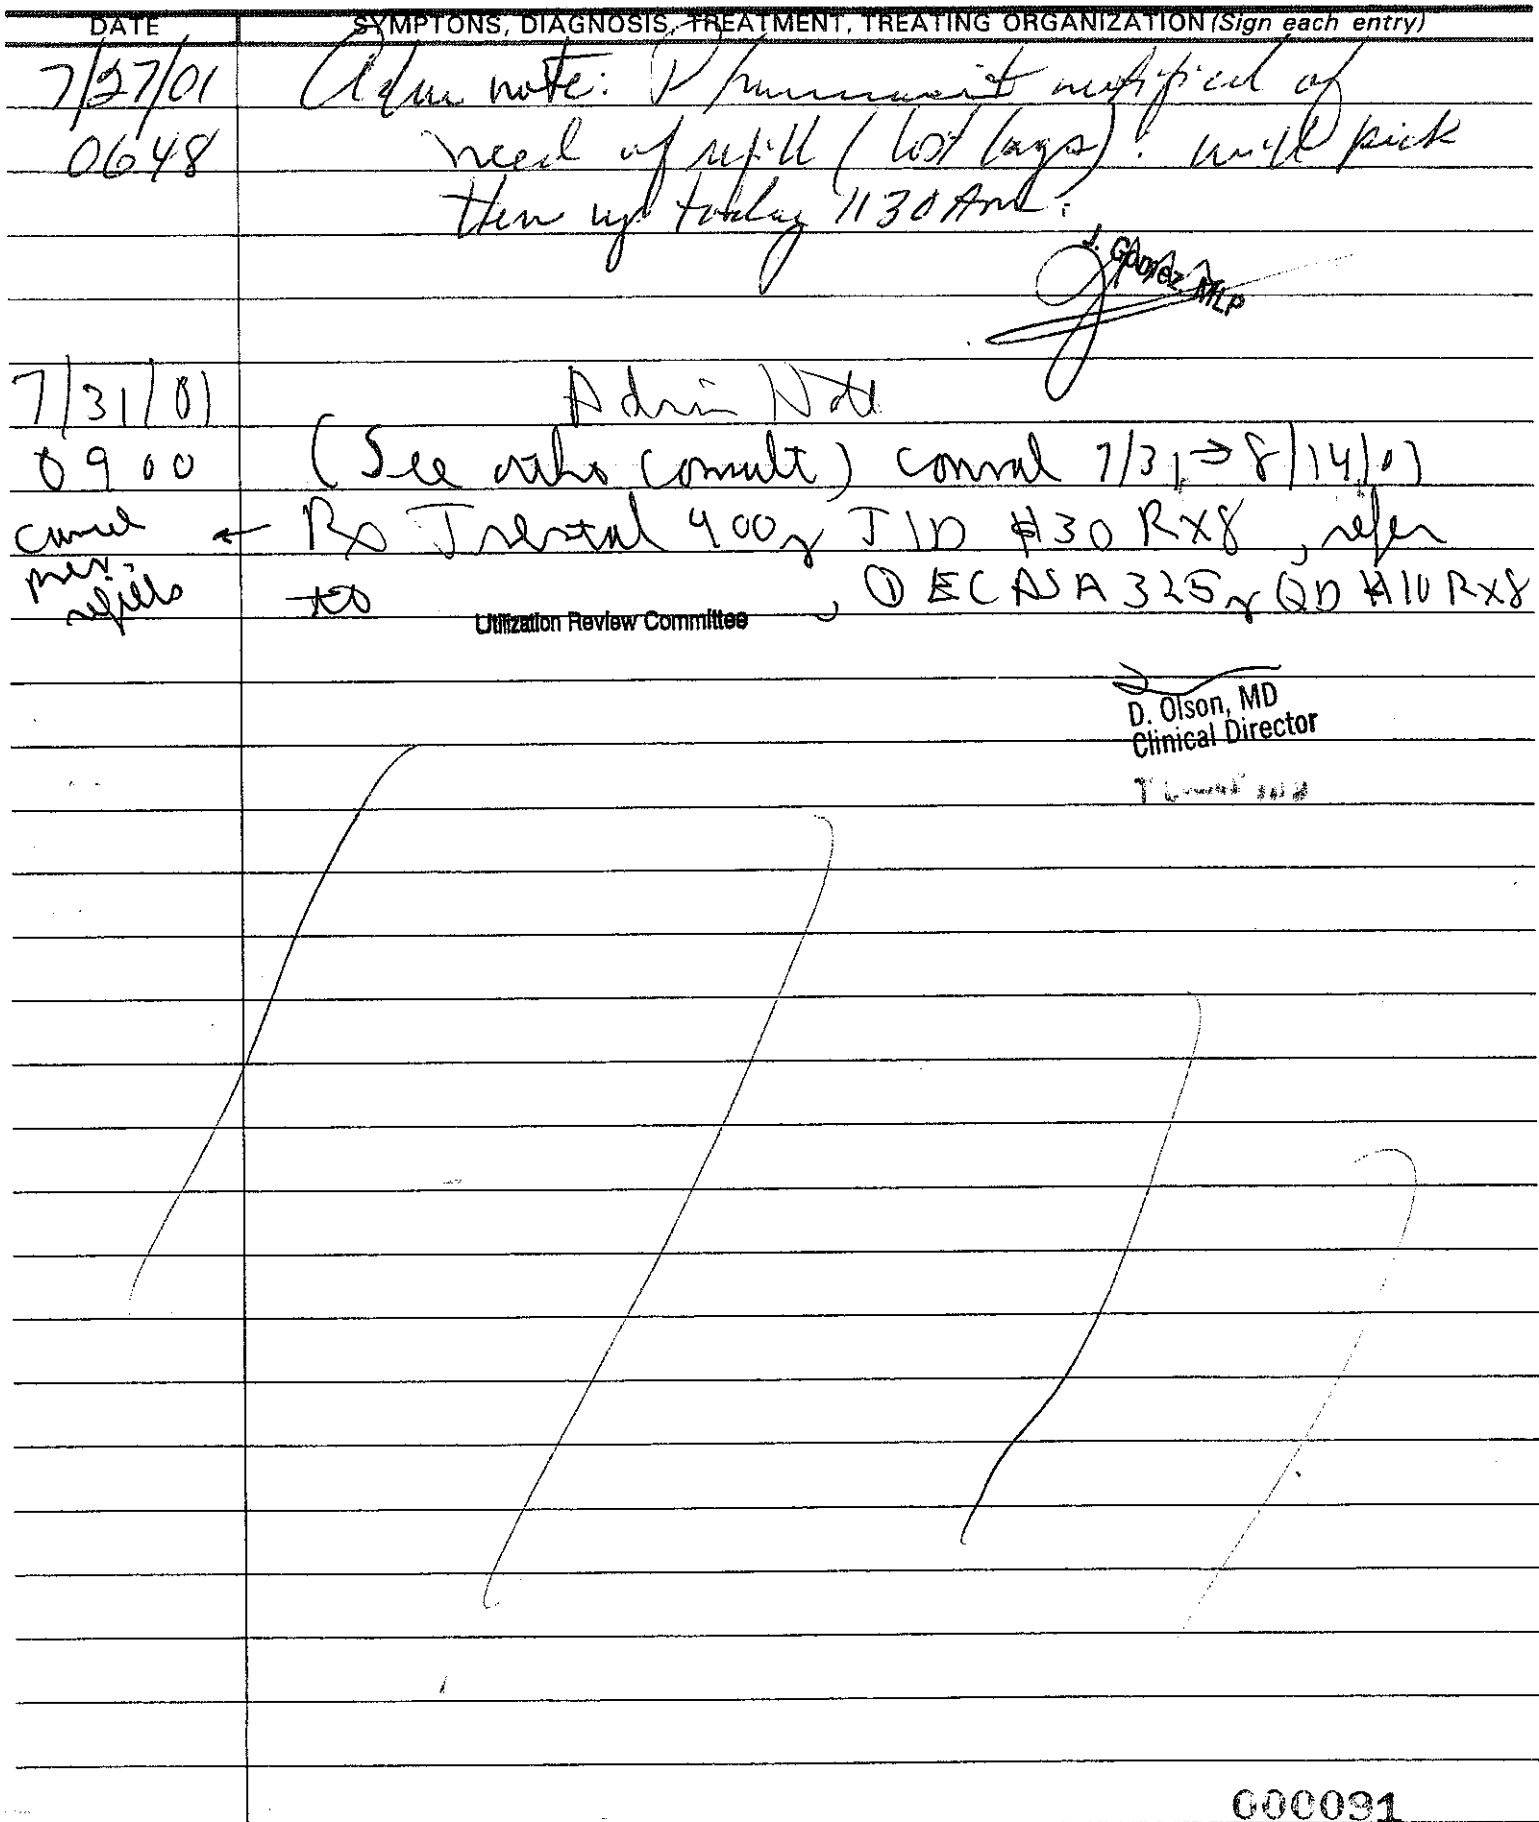 DATE SYMPTONS, DIAGNOSIS, TREATMENT, TREATING ORGANIZATION (Sign each entry)
7/27/01 Adm note: Pharmacist notified of
0648 need of refill (lost bags). will pick
them up today 1130 Am.
J. Gamez, MLP
7/31/01 Admin Note
0900 (See ortho consult) conval 7/31 → 8/14/01
cancel prev. refills ← Rx Trental 400 TID #30 RX8, refer
to Utilization Review Committee, ① ECASA 325 QD #10 RX8
D. Olson, MD
Clinical Director
000091